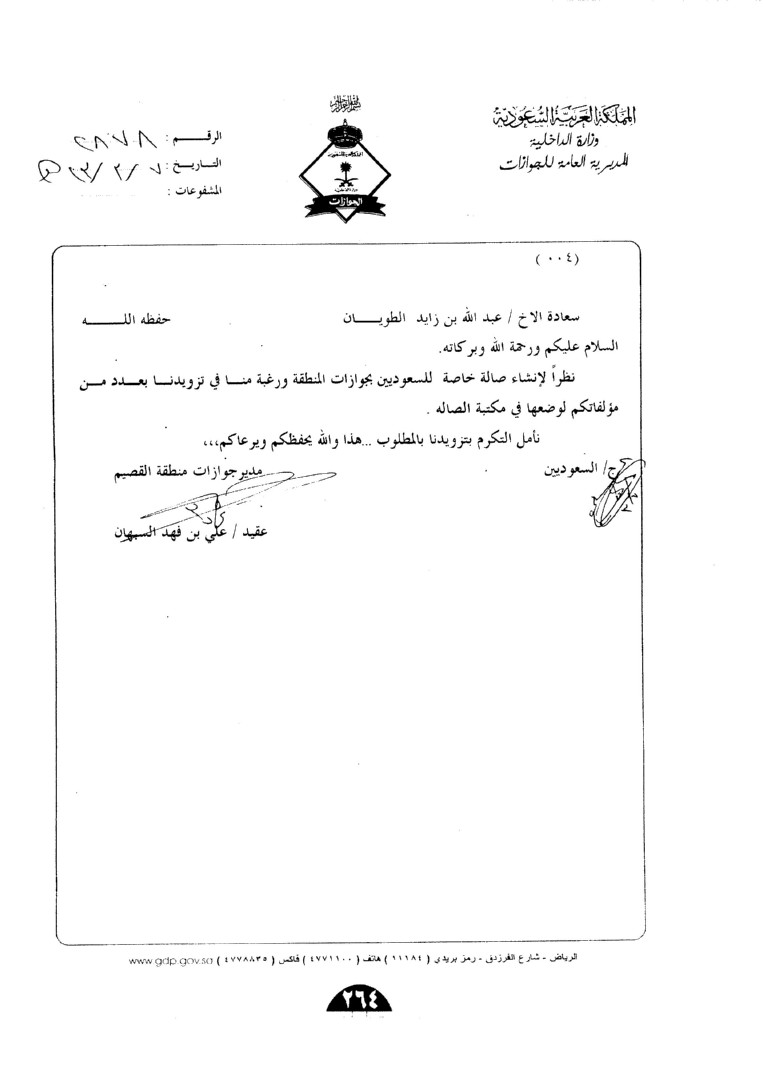 المملكة العربية السعودية
وزارة الداخلية
المديرية العامة للجوازات
الجوازات
الرقـــــم :
التـاريـخ :
المشفوعات :
(٠٠٤)
سعادة الاخ / عبد الله بن زايد الطويـــان حفظه اللـــــه
السلام عليكم ورحمة الله وبركاته.
نظراً لإنشاء صالة خاصة للسعوديين بجوازات المنطقة ورغبة منـا في تزويدنـا بعـدد مـن
مؤلفاتكم لوضعها في مكتبة الصاله .
نأمل التكرم بتزويدنا بالمطلوب ...هذا والله يحفظكم ويرعاكم،،،
ج/ السعوديين
مدير جوازات منطقة القصيم
عقيد / علي بن فهد السبهان
الرياض - شارع الفرزدق - رمز بريدي ( ١١١٨٤ ) هاتف ( ٤٧٧١١٠٠ ) فاكس ( ٤٧٧٨٨٣٥ ) www.gdp.gov.sa
٢٦٤